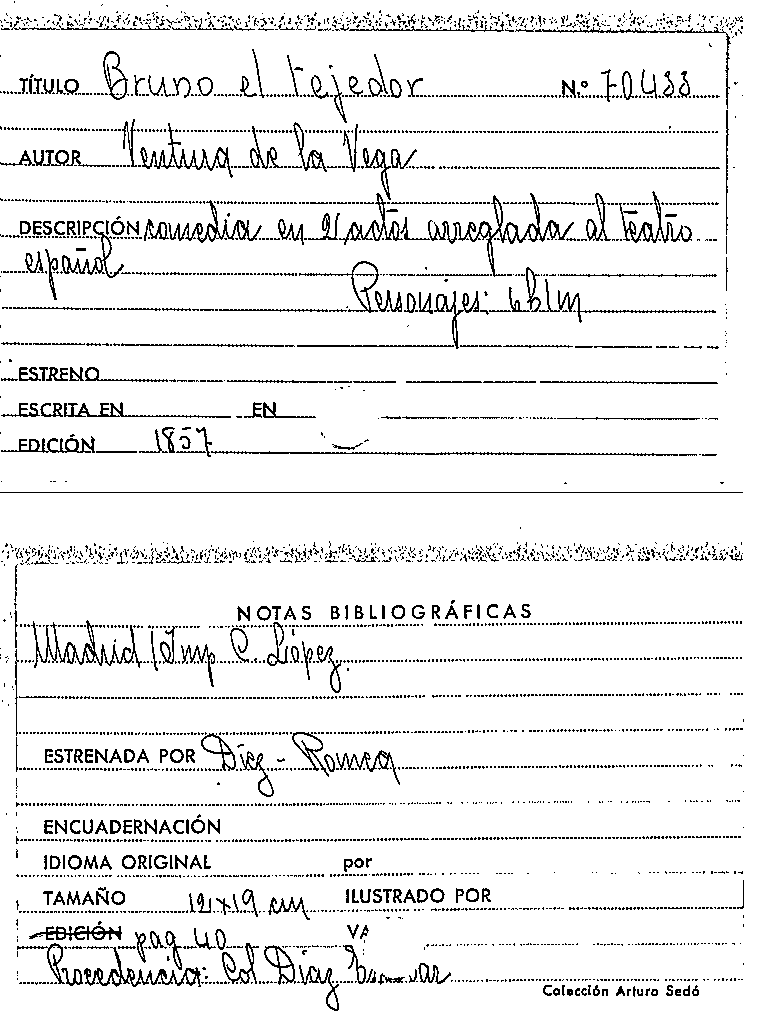 TÍTULO Bruno el tejedor N.º 70433
AUTOR Ventura de la Vega
DESCRIPCIÓN comedia en 2 actos arreglada al teatro
español
Personajes: 6h 1m
ESTRENO
ESCRITA EN EN
EDICIÓN 1857
NOTAS BIBLIOGRÁFICAS
Madrid / Imp C. López.
ESTRENADA POR Díez - Romea
ENCUADERNACIÓN
IDIOMA ORIGINAL por
TAMAÑO 12x19 cm ILUSTRADO POR
EDICIÓN pag 40 VA
Procedencia: Col Díaz
Colección Arturo Sedó